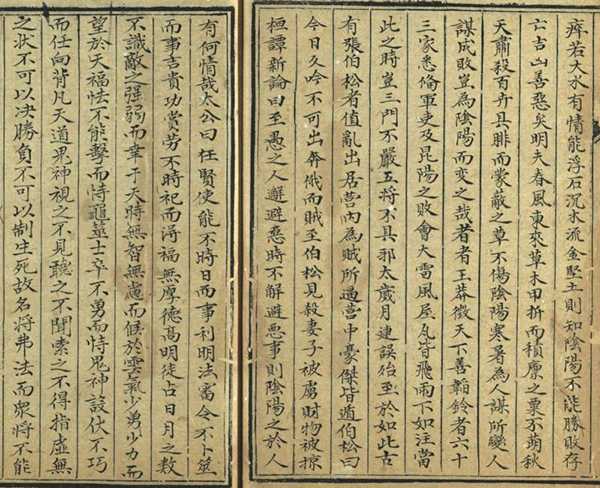 若大水有情能浮石沉水流金堅土則知陰陽不能勝敗存
亡吉凶善惡矣明夫春風東來草木甲折而積廪之粟不萌秋
天肅殺百卉具腓而蒙蔽之草不傷陰陽寒暑為人謀所變人
謀成敗豈為陰陽而變之哉昔者王莽徵天下善韜鈐者六十
三家悉俻軍吏及昆陽之敗會大雷風屋瓦皆飛雨下如注當
此之時豈三門不嚴五将不具耶太歲月建誤殆至於如此古
有張伯松者值亂出居營内為賊所逼營中豪傑皆遁伯松曰
今日久吟不可出奔俄而賊至伯松見殺妻子被虜財物被掠
桓譚新論曰至愚之人避避惡時不解避悪事則陰陽之於人
有何情哉太公曰任賢使能不時日而事利明法審令不卜筮
而事吉貴功賞勞不時祀而得福無厚德高明徒占日月之数
不識敵之强弱而幸于天時無智無慮而候於雲氣少勇少力而
望於天福怯不能擊而恃龜筮士卒不勇而恃鬼神設伏不巧
而任向背凡天道鬼神視之不見聽之不聞索之不得指虚無
之状不可以决勝負不可以制生死故名将弗法而衆将不能